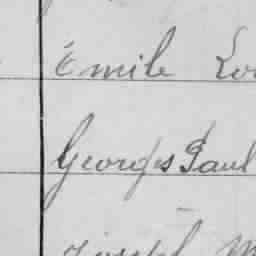 Emile Lou
Georges Paul
Joseph M